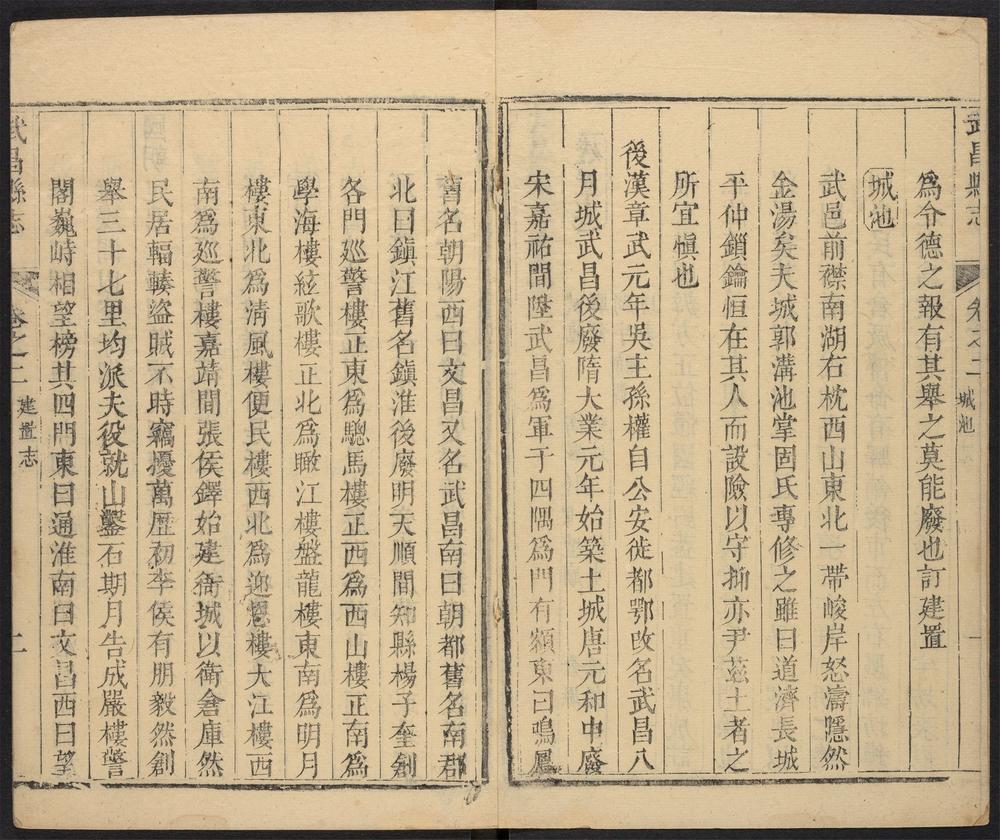 武昌縣志
卷之二
城池
一
為令德之報有其舉之莫能廢也訂建置
城池
武邑前襟南湖右枕西山東北一帶峻岸怒濤隱然
金湯矣夫城郭溝池掌固氏專修之雖曰道濟長城
平仲鎖鑰恒在其人而設險以守抑亦尹茲土者之
所宜愼也
後漢章武元年吳主孫權自公安徙都鄂改名武昌八
月城武昌後廢隋大業元年始築土城唐元和中廢
宋嘉祐間陞武昌為軍于四隅為門有額東曰鳴鳳
舊名朝陽西曰文昌又名武昌南曰朝都舊名南郡
北曰鎮江舊名鎮淮後廢明天順間知縣楊子奎創
各門廵警樓正東為驄馬樓正西為西山樓正南為
學海樓絃歌樓正北為瞰江樓盤龍樓東南為明月
樓東北為清風樓便民樓西北為迎恩樓大江樓西
南為廵警樓嘉靖間張侯鐸始建衙城以衛倉庫然
民居輻輳盜賊不時竊擾萬歷初李侯有朋毅然創
舉三十七里均派夫役就山鑿石期月告成嚴樓警
閣巍峙相望榜其四門東曰通淮南曰文昌西曰望
武昌縣志
卷之二
建置志
二